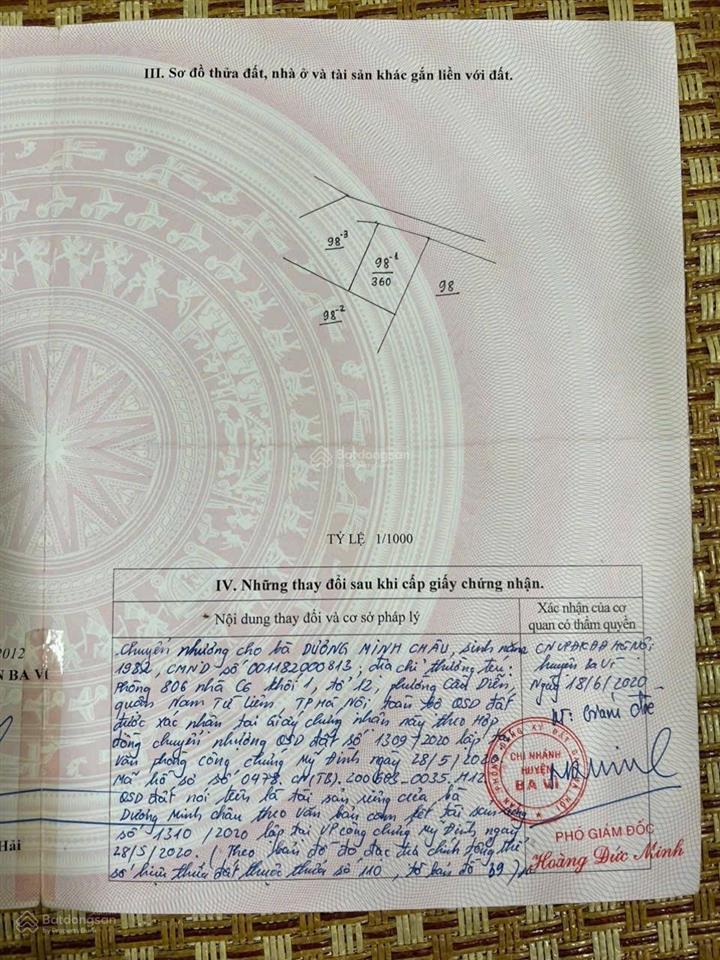 III. Sơ đồ thửa đất, nhà ở và tài sản khác gắn liền với đất.
98-3
98-1
360
98
98-2
Batdongsan
by PropertyGuru
TỶ LỆ 1/1000
IV. Những thay đổi sau khi cấp giấy chứng nhận.
Nội dung thay đổi và cơ sở pháp lý
Xác nhận của cơ
quan có thẩm quyền
2012
N BA VÌ
Hải
Chuyển nhượng cho bà DƯƠNG MINH CHÂU, sinh năm
1982, CMND số 001182000813; địa chỉ thường trú:
Phòng 806 nhà C6 khối 1, tổ 12, phường Cầu Diễn,
quận Nam Từ Liêm, TP Hà Nội, toàn bộ QSD đất
được xác nhận tại Giấy chứng nhận này theo Hợp
đồng chuyển nhượng QSD đất số 1309/2020 lập tại
Văn phòng công chứng Mỹ Đình ngày 28/5/2020
Mã hồ sơ số 0478.CN(TB).200603-0035.A12
QSD đất nói trên là tài sản riêng của bà
Dương Minh Châu theo văn bản cam kết tài sản riêng
số 1310/2020 lập tại VP công chứng Mỹ Đình ngày
28/5/2020. (Theo bản đồ đo đạc địa chính tổng thể
số hiệu thửa đất thuộc thửa số 110, tờ bản đồ 39)
CNVPĐKĐĐ HÀ NỘI
huyện Ba Vì
Ngày 18/6/2020
VĂN PHÒNG ĐĂNG KÝ ĐẤT ĐAI HÀ NỘI
CHI NHÁNH
HUYỆN
BA VÌ
PHÓ GIÁM ĐỐC
Hoàng Đức Minh
Batdongsan
by PropertyGuru